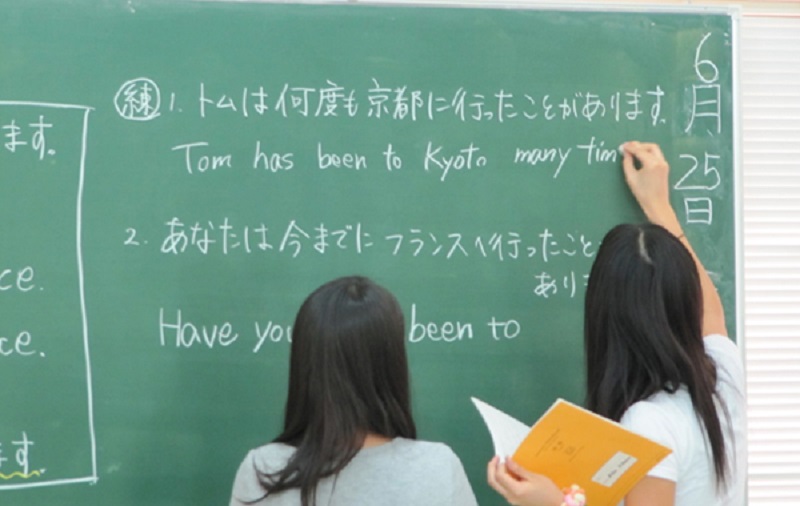 ます。
ce.
ce.
ます.
練 1. トムは何度も京都に行ったことがあります。
Tom has been to Kyoto many tim
2. あなたは今までにフランスへ行ったこと
あり
Have you been to
6月25日